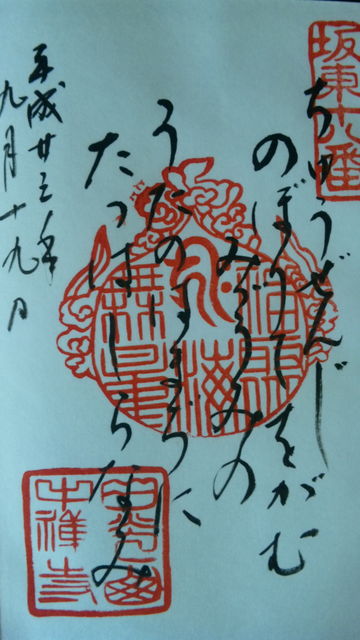 坂東十八番
ちゅうぜんじ
のぼりてをがむ
みづうみの
うたのはまぢに
たつはしらなみ
平成廿三年
九月十九日
福聚
海
無量
中禅寺